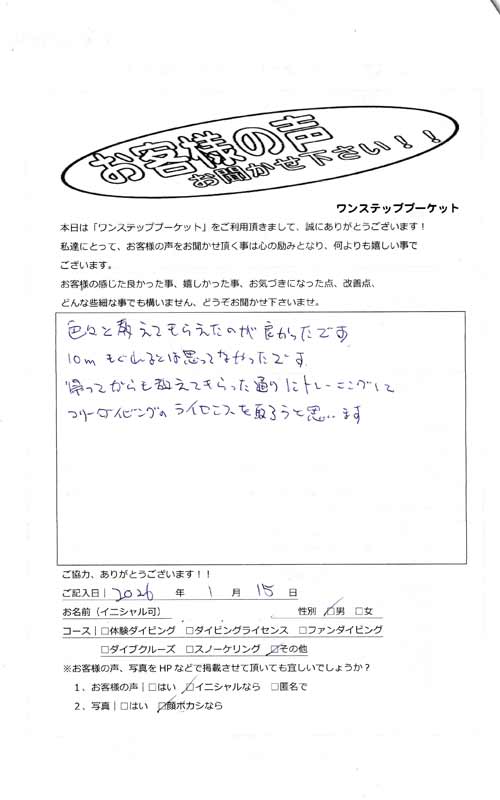 お客様の声
お聞かせ下さい！！
ワンステッププーケット
本日は「ワンステッププーケット」をご利用頂きまして、誠にありがとうございます！
私達にとって、お客様の声をお聞かせ頂く事は心の励みとなり、何よりも嬉しい事で
ございます。
お客様の感じた良かった事、嬉しかった事、お気づきになった点、改善点、
どんな些細な事でも構いません、どうぞお聞かせ下さいませ。
色々と教えてもらえたのが良かったです
10mもぐれるとは思ってなかったです
帰ってからも教えてもらった通りにトレーニングして
フリーダイビングのライセンスを取ろうと思います
ご協力、ありがとうございます！！
ご記入日| 2026 年 1 月 15 日
お名前（イニシャル可） 性別 ☑男 □女
コース| □体験ダイビング □ダイビングライセンス □ファンダイビング
□ダイブクルーズ □スノーケリング ☑その他
※お客様の声、写真をHPなどで掲載させて頂いても宜しいでしょうか？
1、お客様の声|□はい ☑イニシャルなら □匿名で
2、写真|□はい ☑顔ボカシなら